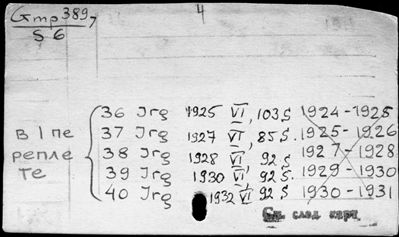 Gmp 389, 4
S 6
в 1 пе
репле
те
36 Jrg 1925 VI, 103 S. 1924-1925
37 Jrg 1927 VI, 85 S. 1925-1926
38 Jrg 1928 VI, 92 S. 1927-1928
39 Jrg 1930 VI, 92 S. 1929-1930
40 Jrg 1932 VI, 92 S 1930-1931
См. след. карт.